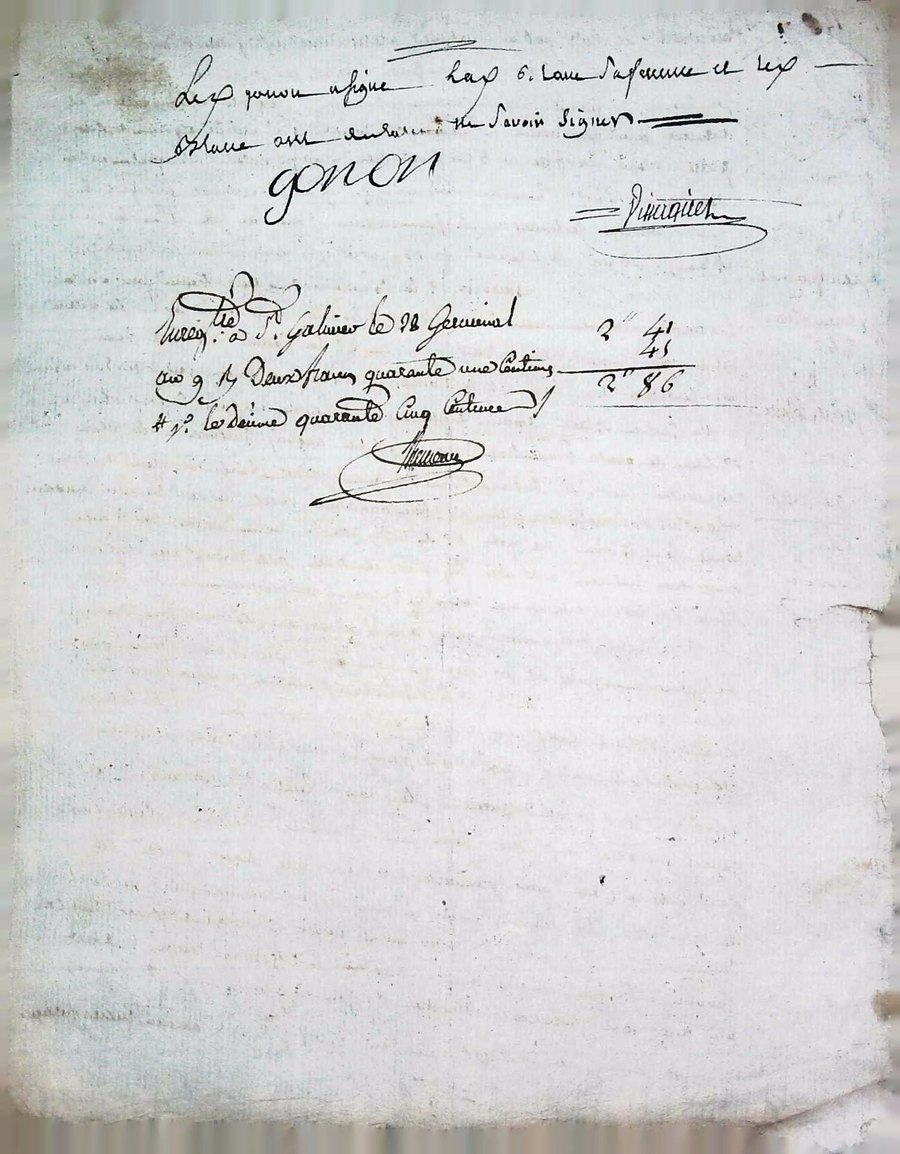 Led. gonon a signé Lad. Blanc sa femme et led.
Blanc ont declaré ne savoir signer
gonon
Enregtré à St. Galmier le 28 Germinal
an 9 R Deux francs quarante une Centimes
pr. le décime quarante Cinq Centimes
2" 41
45
2" 86